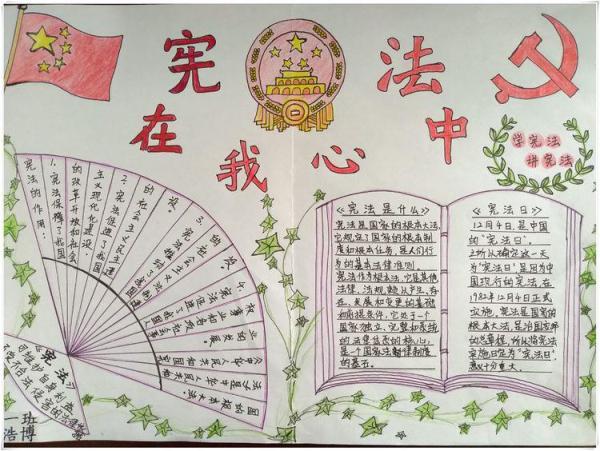 宪法
在我心中
学宪法
讲宪法
宪法的作用：
1.宪法保障了我国
的改革开放和社会
主义现代化建设。
2.宪法促进了我国
的社会主义民主建
设。
3.宪法推动了我国
的社会主义法制建
设。
4.宪法促进了我国人
权事业和各项社会事
业的发展。
《中华人民共和国宪
法》是中华人民共和
国的根本大法
《宪法》
《宪法是什么》
宪法是国家的根本大法，
它规定了国家的根本制
度和根本任务，是人们行
为的基本法律准则。
宪法作为根本法，它是其他
法律、法规赖以产生、存
在、发展和变更的基础
和前提条件，它处于一个
国家独立、完整和系统
的法律体系的核心，
是一个国家法制律制度
的基石。
《宪法日》
12月4日，是中国
的"宪法日"。
之所以确定这一天
为"宪法日"，是因为中
国现行的宪法，在
1982年12月4日正式
实施，宪法是国家的
根本大法，是治国安邦
的总章程，所以将宪法
实施日定为"宪法日"，
意义十分重大。
一班
浩博